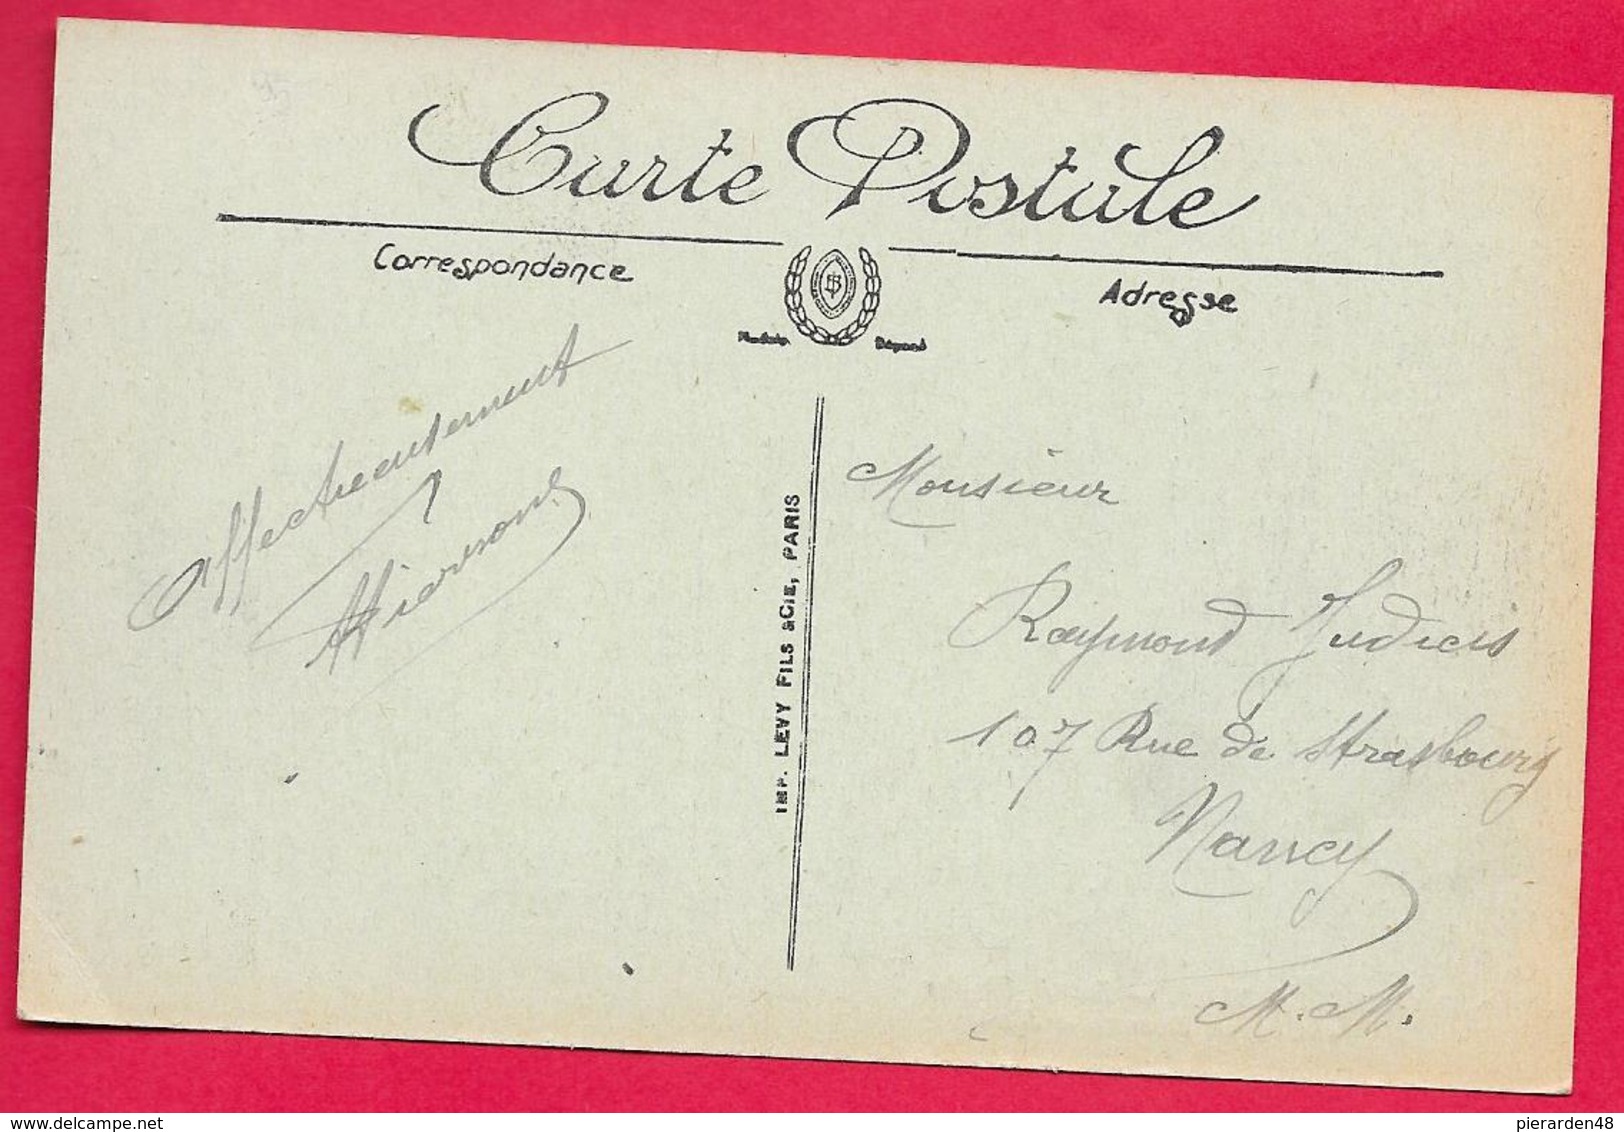 Carte Postale
Correspondance
Adresse
Modèle Déposé
Affectueusement
IMP. LEVY FILS & CIE, PARIS
Monsieur
Raymond
107 Rue de Strasbourg
Nancy
M. M.
delcampe.net
pierarden48